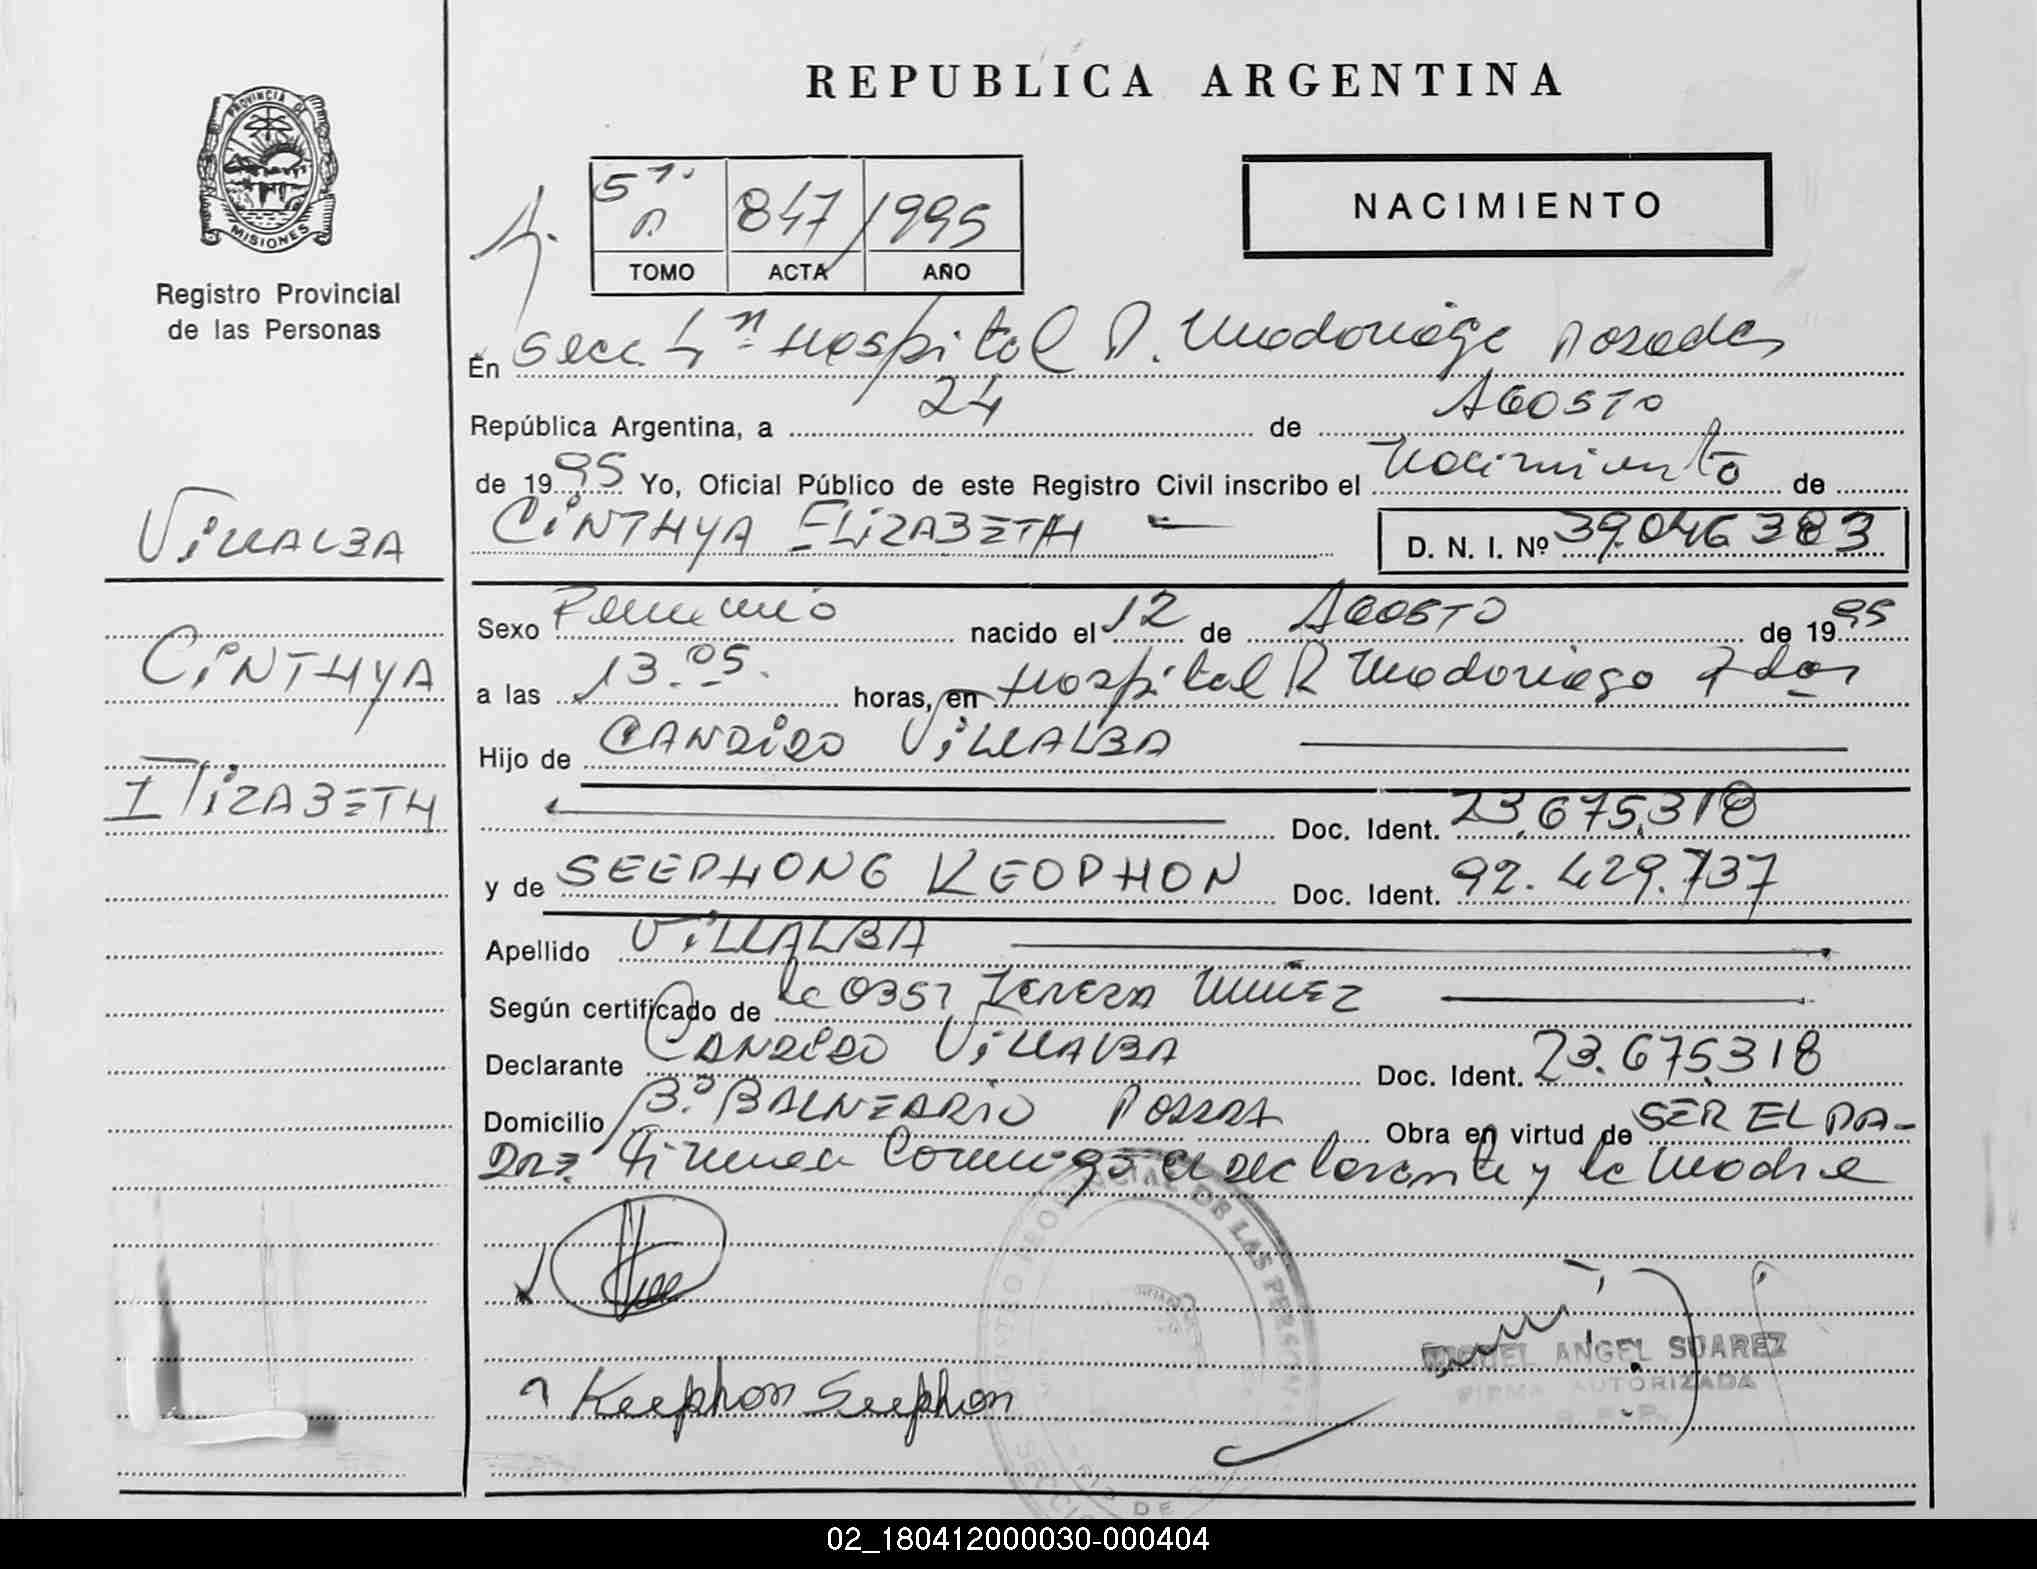 REPUBLICA ARGENTINA
PROVINCIA D
MISIONES
Registro Provincial
de las Personas
847 1995
TOMO ACTA AÑO
NACIMIENTO
En Secc. 4ª Hospital R. Madariaga Posadas
República Argentina, a 24 de AGOSTO
de 1995 Yo, Oficial Público de este Registro Civil inscribo el Nacimiento de
CINTHYA ELIZABETH D. N. I. Nº 39.046.383
VILLALBA
CINTHYA
ELIZABETH
Sexo Femenino nacido el 12 de AGOSTO de 1995
a las 13.05. horas, en Hospital R Madariaga Pdas
Hijo de CANDIDO VILLALBA
Doc. Ident. 23.675.318
y de SEEPHONG KEOPHON Doc. Ident. 92.429.737
Apellido VILLALBA
Según certificado de la Obst TERESA
Declarante CANDIDO VILLALBA Doc. Ident. 23.675.318
Domicilio Bº BALNEARIO Obra en virtud de SER EL PA-
DRE. Firman Conmigo el declarante y la Madre
Keephon Seephon
MIGUEL ANGEL SUAREZ
FIRMA AUTORIZADA
DE LAS PERSONAS
02_180412000030-000404